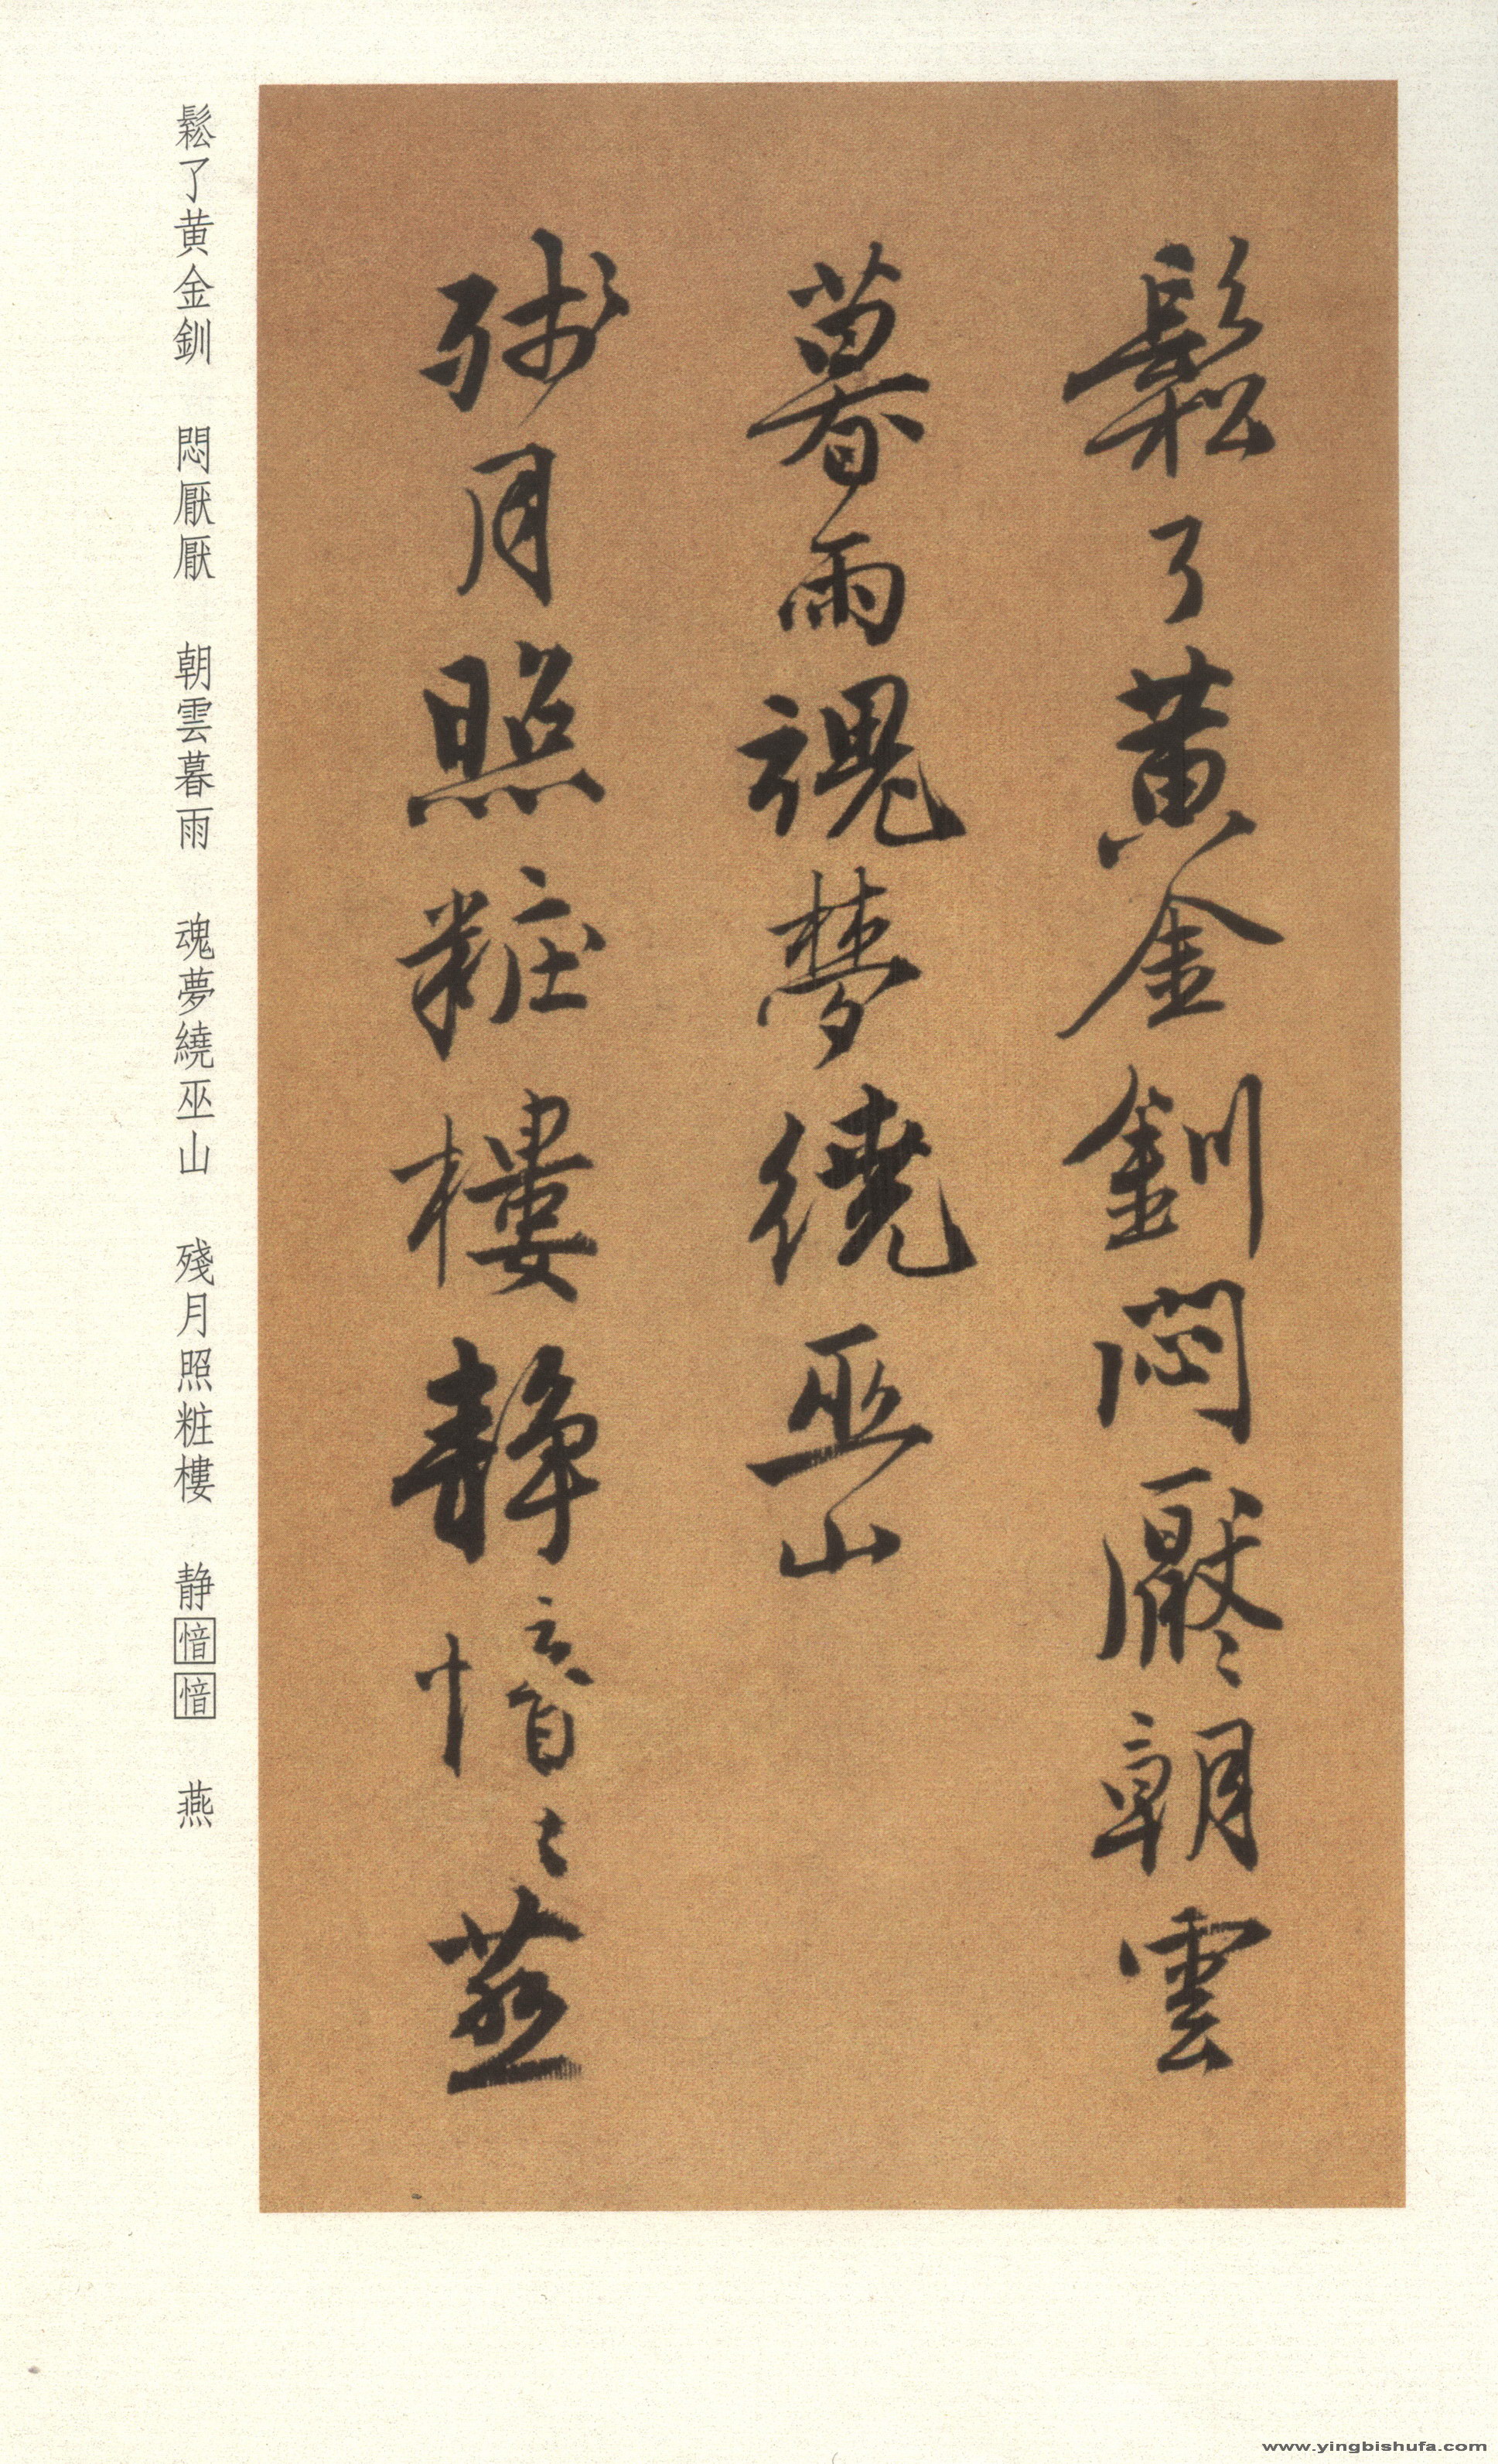 鬆了黄金釧悶厭〻朝雲
暮雨魂夢繞巫山
殘月照粧樓静愔〻燕
鬆了黄金釧　悶厭厭　朝雲暮雨　魂夢繞巫山　殘月照粧樓　静愔愔　燕
www.yingbishufa.com